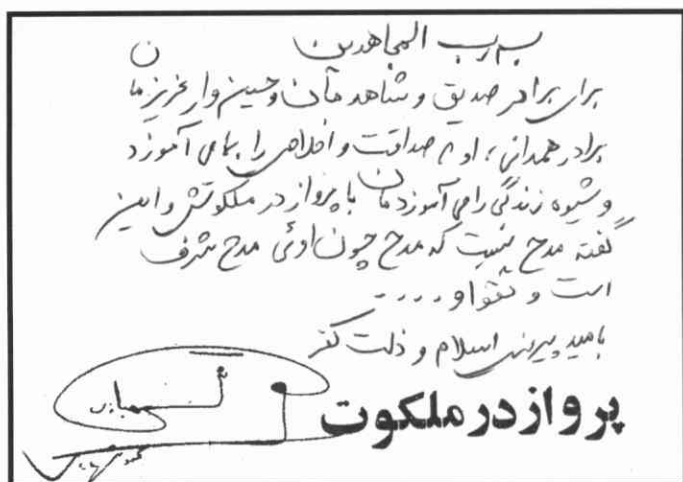 به رب المجاهدین
برای برادر صدیق و شاهدمان و حسین وار عزیز ما
برادر همدانی، او که صداقت و اخلاص را بما می آموزد
و شیوه زندگی را می آموزدمان با پرواز در ملکوتش و این
گفته مدح نیست که مدح چون اوئی مدح شرف
است و تقوا و ....
بامید پیروزی اسلام و ذلت کفر
پرواز در ملکوت